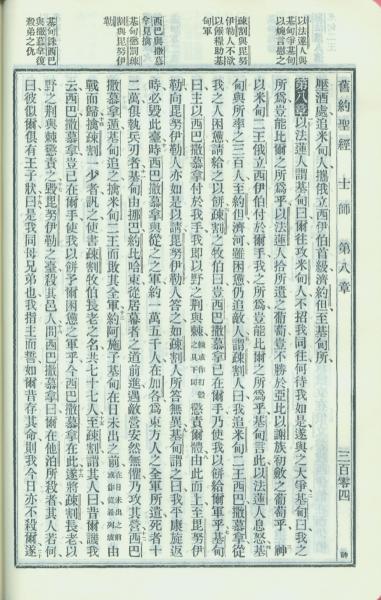 舊約聖經 士師 第八章 三百零四
以法蓮人與
基甸爭基甸
以婉言慰之
疎割與毘努
伊勒人不欲
以餅糧助基
甸軍
基甸懲罰疎
割與毘努伊
勒
西巴與撒慕
拿見擒
基甸誅西巴
與撒慕拿復
殺弟之仇
壓酒處追米甸人攜俄立西伊伯首級濟約但至基甸所
第八章以法蓮人謂基甸曰爾往攻米甸人不招我同往何待我如是遂與之大爭基甸曰我之
所爲豈能比爾之所爲乎以法蓮人拾所遺之葡萄豈不勝於亞比以謝族初斂之葡萄乎神
以米甸二王俄立西伊伯付於爾手我之所爲豈能比爾之所爲乎基甸言此以法蓮人息怒基
甸與所率之三百人至約但濟河雖困憊仍追敵人謂疎割人曰我追米甸二王西巴撒慕拿從
我之人困憊請給之以餅疎割之牧伯曰豈西巴撒慕拿已在爾手乃使我以餅給爾軍乎基甸
曰主以西巴撒慕拿付於我手我即以野之荆與棘棘或作打穀之具下同懲責爾體由此而上至毘努伊
勒向毘努伊勒人亦如是以請毘努伊勒人答之如疎割人所答無異基甸謂之曰我平康旋返
時必毀此臺時西巴撒慕拿與從之之軍約一萬五千人在加各爲東方人之全軍所遺死者十
二萬俱執兵刃者基甸由挪巴約比哈東從居幕者之道前進遇敵營安然無懼乃攻其營西巴
撒慕拿遁基甸追之擒米甸二王而敗其全軍約阿施子基甸在日未出之前在日未出之前或作從希列坡由
戰而歸擒疎割一少者訊之使書疎割牧伯長老之名共七十七人至疎割謂其人曰昔爾譏我
云西巴撒慕拿豈已在爾手使我以餅予爾困憊之軍乎今西巴撒慕拿在此遂將疎割長老以
野之荆與棘懲責之毀毘努伊勒之臺殺其邑人問西巴撒慕拿曰爾在他泊所殺者其人若何
曰彼似爾俱有王子狀曰是我同母兄弟也我指主而誓如爾昔存其命則我今日亦不殺爾遂